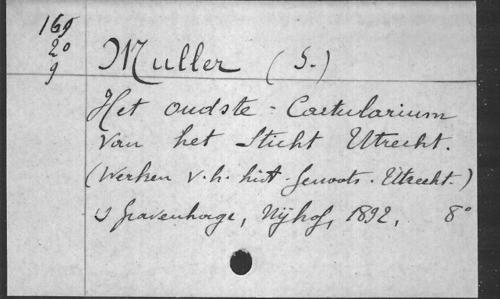 169
20
9
Muller (S.)
Het oudste - Cartularium
van het Sticht Utrecht.
(Werken v. h. hist. Genoots. Utrecht.)
s Gravenhage, Nijhof, 1892, 8°